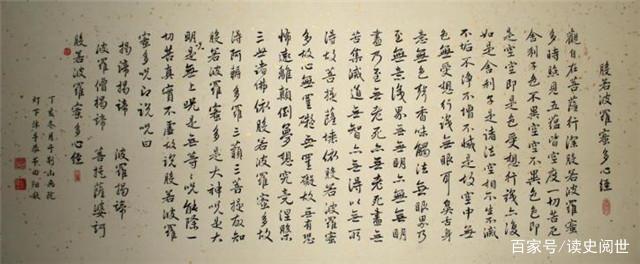 般若波羅蜜多心經
觀自在菩薩行深般若波羅蜜
多時照見五蘊皆空度一切苦厄
舍利子色不異空空不異色色即
是空空即是色受想行識亦復
如是舍利子是諸法空相不生不滅
不垢不淨不增不減是故空中無
色無受想行識無眼耳鼻舌身
意無色聲香味觸法無眼界乃
至無意識界無無明亦無無明
盡乃至無老死亦無老死盡無
苦集滅道無智亦無得以無所
得故菩提薩埵依般若波羅蜜
多故心無罣礙無罣礙故無有恐
怖遠離顛倒夢想究竟涅槃
三世諸佛依般若波羅蜜多故
得阿耨多羅三藐三菩提故知
般若波羅蜜多是大神咒是大
明咒是無上咒是無等咒能除一
切苦真實不虛故說般若波羅
蜜多咒即說咒曰
揭諦揭諦 波羅揭諦
波羅僧揭諦 菩提薩婆訶
般若波羅蜜多心經
丁亥冬月于荊山畫院
燈下
百家号/读史阅世